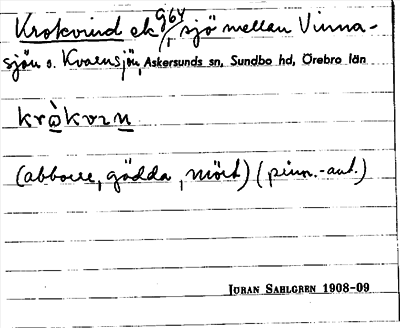 Krokvind ek G64, sjö mellan Vinna-
sjön o. Kvarnsjön, Askersunds sn, Sundbo hd, Örebro län
kròkvɪn
(abborre, gädda, mört) (penn.-ant.)
JÖRAN SAHLGREN 1908-09